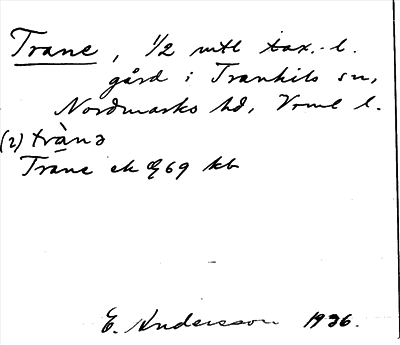 Trane, 1/2 mtl tax. l.
gård i Trankils sn,
Nordmarks hd, Vrml l.
(2) trànə
Trane ek 69 kb
E. Andersson 1936.